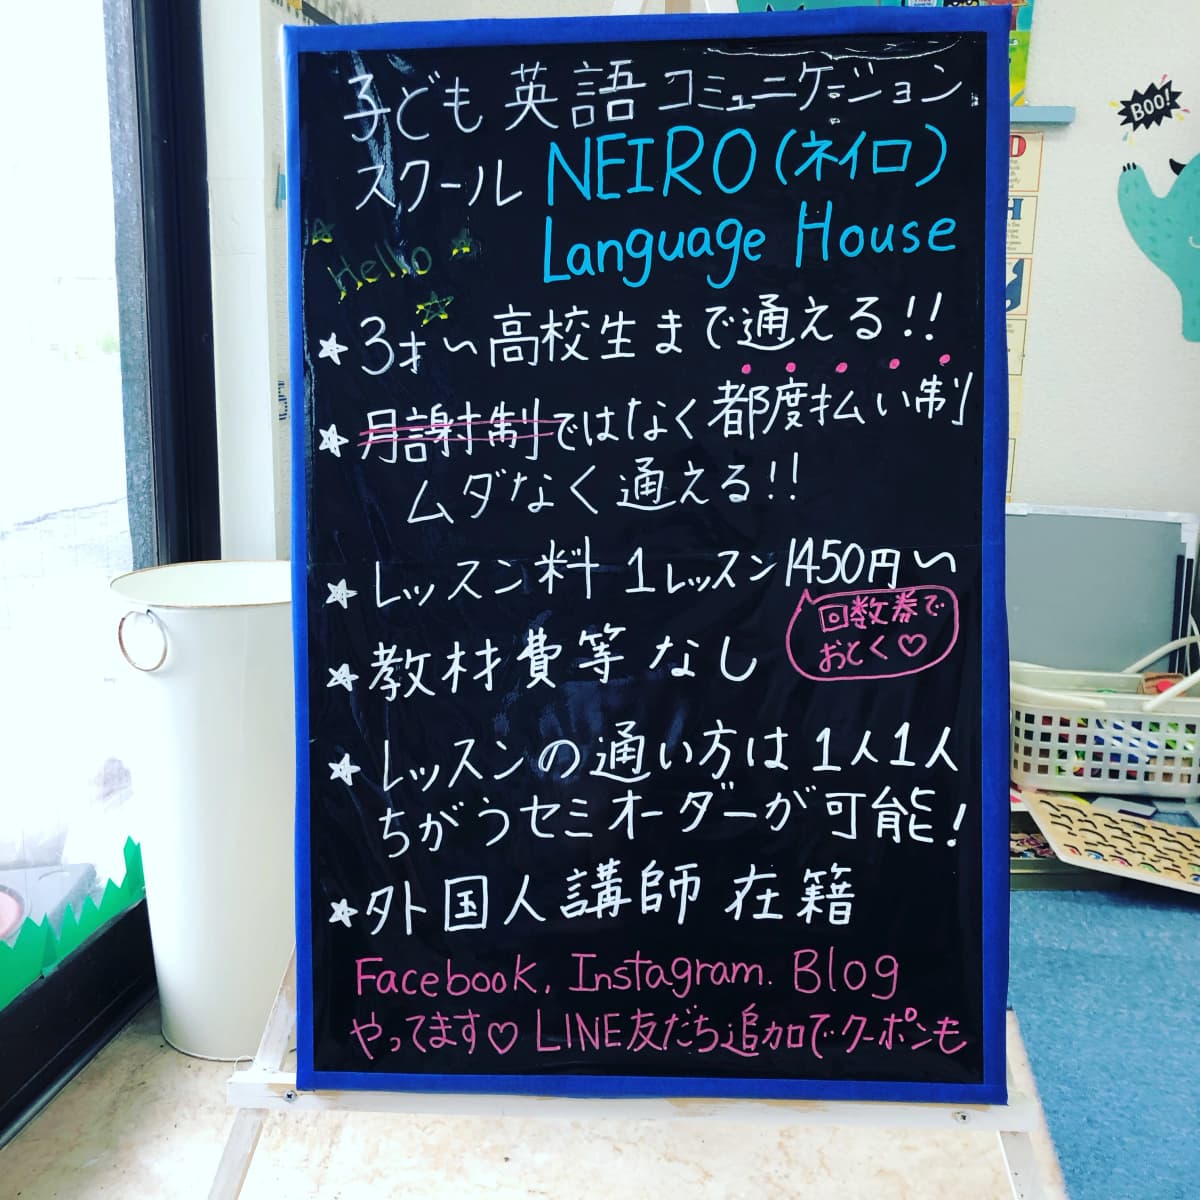 子ども英語コミュニケーション
スクール NEIRO(ネイロ)
Language House
Hello
★3才〜高校生まで通える!!
★月謝制ではなく都度払い制
ムダなく通える!!
★レッスン料 1レッスン1450円〜
回数券で
おとく♡
★教材費等なし
★レッスンの通い方は1人1人
ちがうセミオーダーが可能!
★外国人講師 在籍
Facebook, Instagram. Blog
やってます♡ LINE友だち追加でクーポンも
BOO!